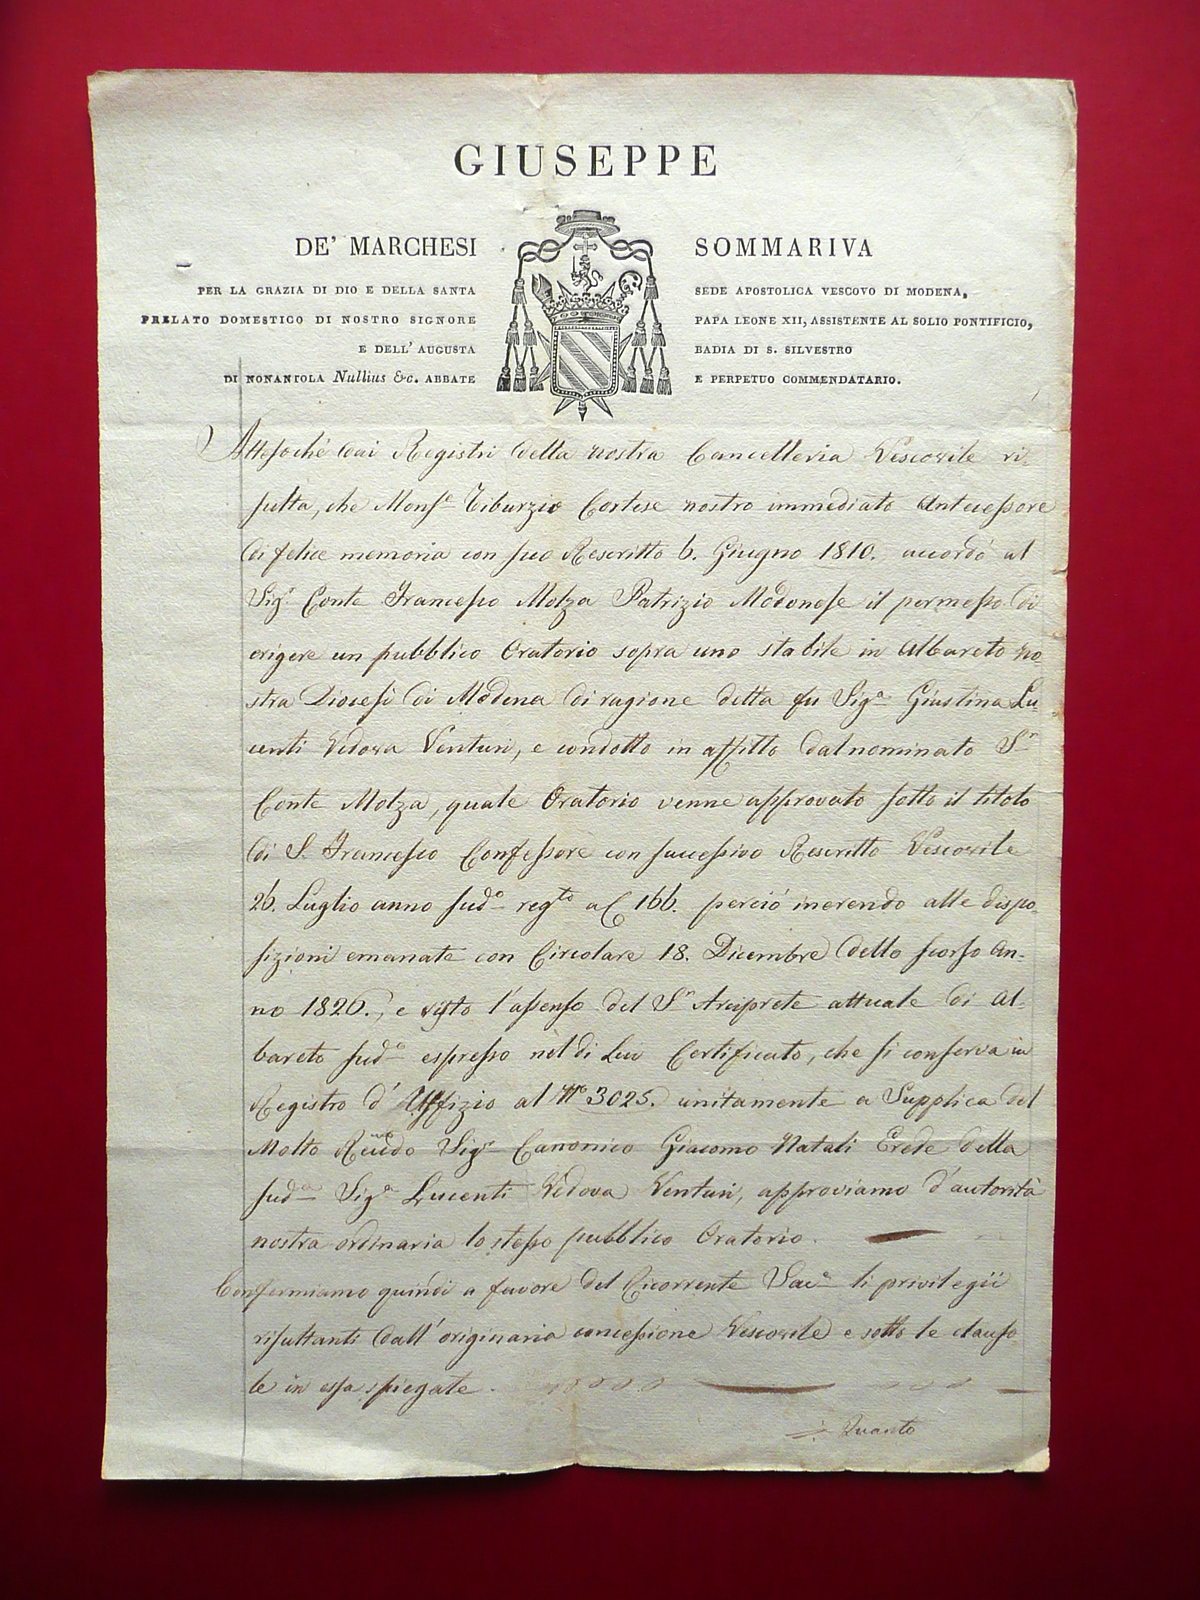 GIUSEPPE
DE' MARCHESI SOMMARIVA
PER LA GRAZIA DI DIO E DELLA SANTA SEDE APOSTOLICA VESCOVO DI MODENA,
PRELATO DOMESTICO DI NOSTRO SIGNORE PAPA LEONE XII, ASSISTENTE AL SOLIO PONTIFICIO,
E DELL' AUGUSTA BADIA DI S. SILVESTRO
DI NONANTOLA Nullius &c. ABBATE E PERPETUO COMMENDATARIO.
Attesochè dai Registri della nostra Cancelleria Vescovile ri-
sulta, che Monsr Tiburzio Cortese nostro immediato Antecessore
di felice memoria con suo Rescritto 6. Giugno 1810. accordò al
Sigr Conte Francesco Molza Patrizio Modonese il permesso di
erigere un pubblico Oratorio sopra uno stabile in Albareto no-
stra Diocesi di Modena di ragione della fu Siga Giustina Lu-
centi Vedova Venturi, e condotto in affitto dal nominato Sr
Conte Molza, quale Oratorio venne approvato sotto il titolo
di S. Francesco Confessore con successivo Rescritto Vescovile
26. Luglio anno sudo regto a C 166. perciò inerendo alle dispo-
sizioni emanate con Circolare 18. Dicembre dello scorso An-
no 1826., e visto l'assenso del Sr Arciprete attuale di Al-
bareto sudo espresso nel di Lui Certificato, che si conserva in
Registro d'Uffizio al No 3025. unitamente a Supplica del
Molto Revdo Sigr Canonico Giacomo Natali Erede della
suda Siga Lucenti Vedova Venturi, approviamo d'autorità
nostra ordinaria lo stesso pubblico Oratorio.
Confermiamo quindi a favore del Ricorrente li privilegii
risultanti dall' originaria concessione Vescovile e sotto le clauso-
le in essa spiegate.
Quanto